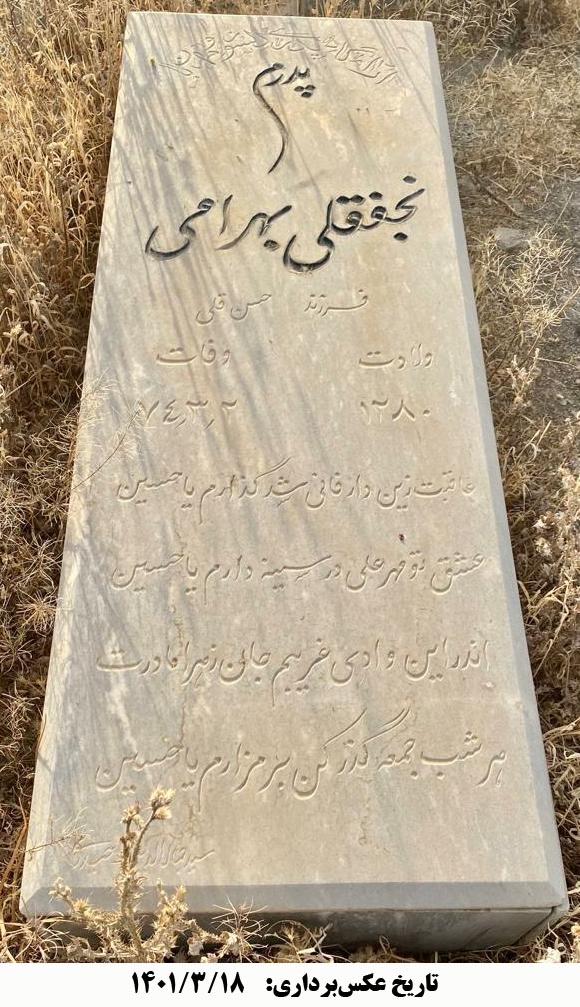 پدرم
نجفقلی بهرامی
فرزند حسن قلی
ولادت وفات
۱۲۸۰ ۷۴٫۳٫۲
عاقبت زین دار فانی شد گذارم یا حسین
عشق تو مهر علی در سینه دارم یا حسین
اندر این وادی غریبم جان زهرا مادرت
هر شب جمعه گذر کن بر مزارم یا حسین
تاریخ عکس‌برداری: ۱۴۰۱/۳/۱۸